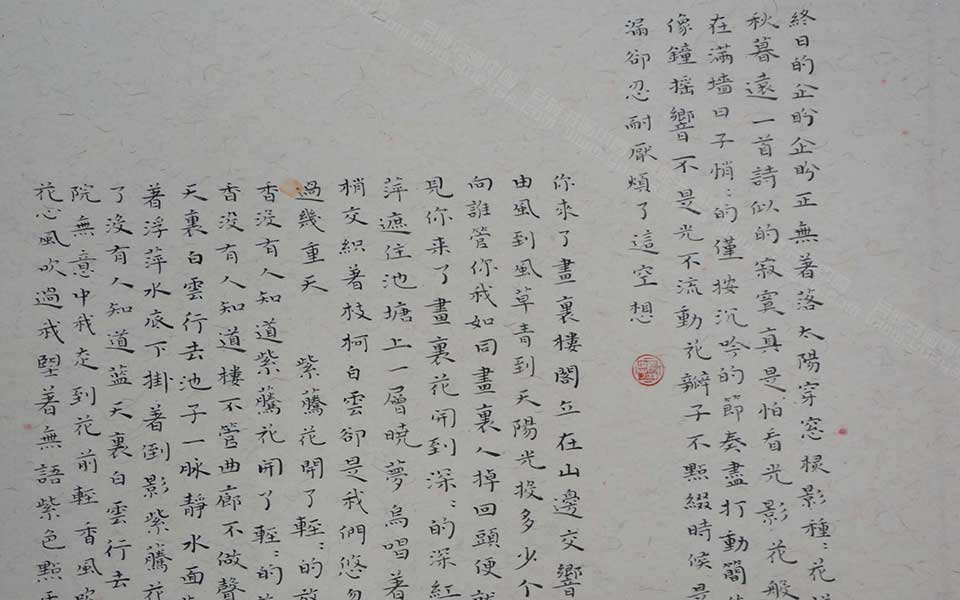 終日的企盼企盼正無著落太陽穿窓櫺影種〻花
秋暮遠一首詩似的寂寞真是怕看光影花般
在滿墻日子悄〻的僅按沉吟的節奏盡打動簡
像鐘搖響不是光不流動花瓣子不點綴時候是
漏卻忍耐厭煩了這空想
你來了畫裏樓閣立在山邊交響
由風到風草青到天陽光投多少个
向誰管你我如同畫裏人掉回頭便就
見你來了畫裏花開到深〻的深紅
萍遮住池塘上一層曉夢鳥唱著
梢交織著枝柯白雲卻是我們悠忽
過幾重天 紫騰花開了輕〻的放
香沒有人知道紫騰花開了輕〻的
香沒有人知道樓不管曲廊不做聲
天裏白雲行去池子一脉靜水面
著浮萍水底下掛著倒影紫騰花
了沒有人知道藍天裏白雲行去
院無意中我走到花前輕香風吹
花心風吹過我望著無語紫色點